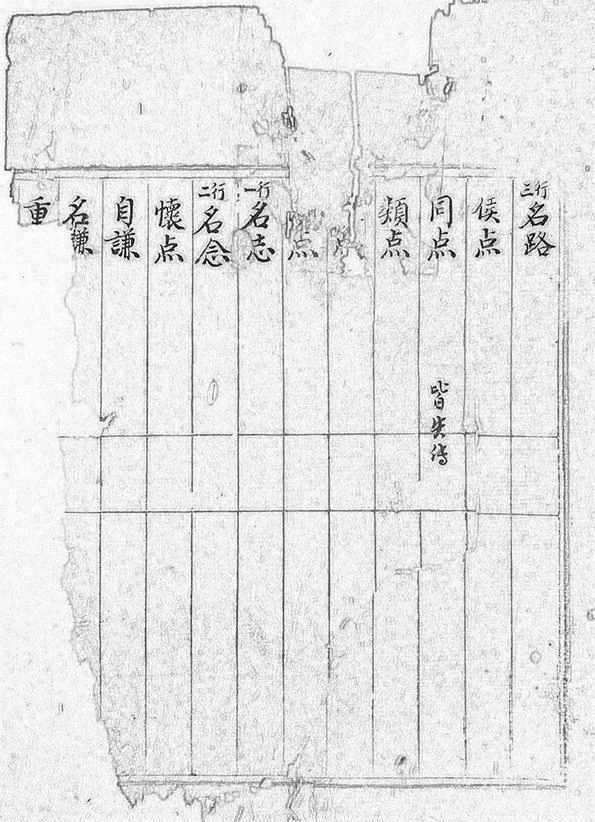 三行名路
侯点
同点 皆失傳
類点
点
一行名志
二行名念
懷点
自謙
名謙
重